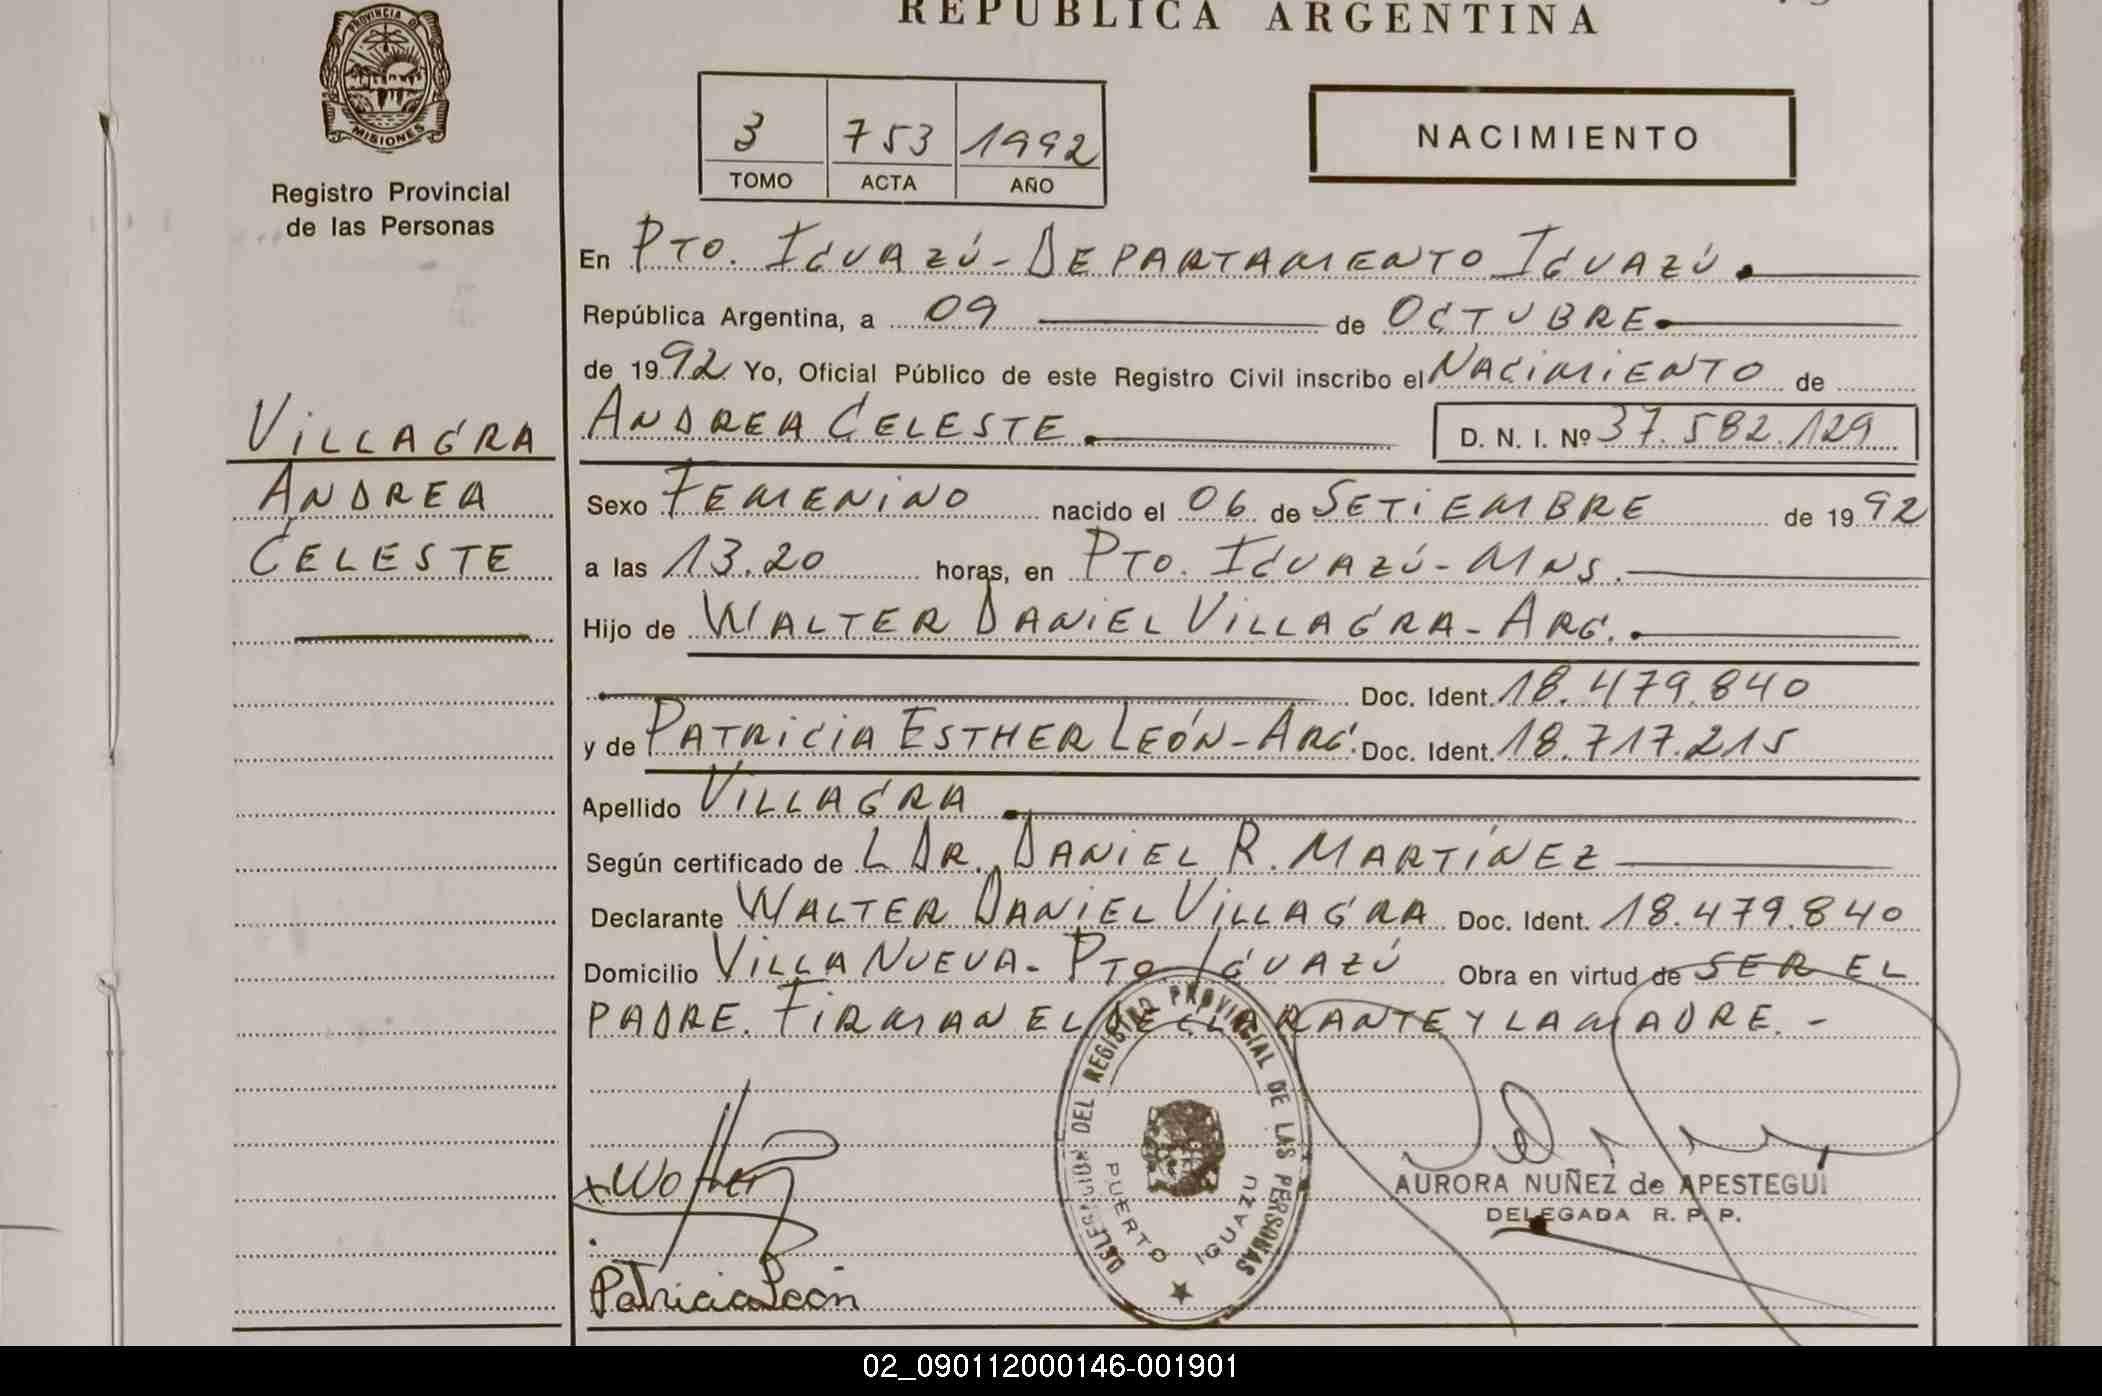 REPUBLICA ARGENTINA
PROVINCIA DE
MISIONES
Registro Provincial
de las Personas
3 753 1992
TOMO ACTA AÑO
NACIMIENTO
En PTO. IGUAZÚ - DEPARTAMENTO IGUAZÚ.
República Argentina, a 09 de OCTUBRE
de 1992 Yo, Oficial Público de este Registro Civil inscribo el NACIMIENTO de
ANDREA CELESTE. D. N. I. Nº 37.582.129
VILLAGRA
ANDREA
CELESTE
Sexo FEMENINO nacido el 06 de SETIEMBRE de 1992
a las 13.20 horas, en PTO. IGUAZÚ - MNS.
Hijo de WALTER DANIEL VILLAGRA - ARG.
Doc. Ident. 18.479.840
y de PATRICIA ESTHER LEÓN - ARG. Doc. Ident. 18.717.215
Apellido VILLAGRA
Según certificado de L DR. DANIEL R. MARTÍNEZ
Declarante WALTER DANIEL VILLAGRA Doc. Ident. 18.479.840
Domicilio VILLA NUEVA - PTO IGUAZÚ Obra en virtud de SER EL
PADRE. FIRMAN EL DECLARANTE Y LA MADRE. -
DELEGACION DEL REGISTRO PROVINCIAL DE LAS PERSONAS
PUERTO IGUAZU
AURORA NUÑEZ de APESTEGUI
DELEGADA R. P. P.
Walter
Patricia León
02_090112000146-001901